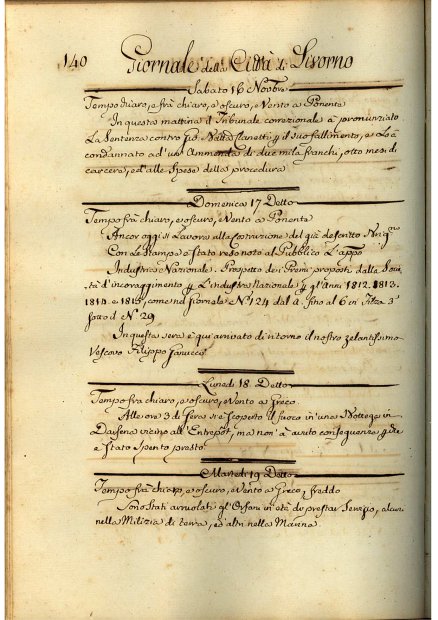 140 Giornale della Città di Livorno
Sabato 16 Novbre
Tempo chiaro, e frà chiaro, e oscuro, e Vento a Ponente
In questa mattina il Tribunale correzionale à pronunziato
La Sentenza contro il suo fallimento, e Lo à
condannato ad un' Ammenda di due mila franchi, otto mesi di
carcere, ed alle Spese della procedura
Domenica 17 Detto
Tempo frà chiaro, e oscuro, e Vento a Ponente
Ancor oggi si Lavora alla Costruzione del già descritto
Con Le Stampe è Stato reso noto al Pubblico L'appo
Industria Nazionale. Prospetto dei Premi proposti dalla Socie
tà d'incoraggimento p L'industria Nazionale p gl'Anni 1812. 1813.
1814 e 1815, come nel Giornale N.° 124 dal a fino al 6 in Filza 3ª
sotto il N.° 29
In questa sera è qui arrivato di ritorno il nostro zelantissimo
Vescovo Filippo Ganucci
Lunedi 18 Detto
Tempo frà chiaro, e oscuro, e Vento a Greco
Alle ore 3 di Sera si è Scoperto il fuoco in una Bottega in
Darsena vicino all' Entrepôt, ma non à avuto conseguenza
e Stato Spento presto
Martedi 19 Detto
Tempo frà chiaro, e oscuro, e Vento a Greco, freddo
Sono Stati arruolati gl'Orfani in età da prestar Servizio, alcuni
nella Milizia di terra, ed altri nella Marina